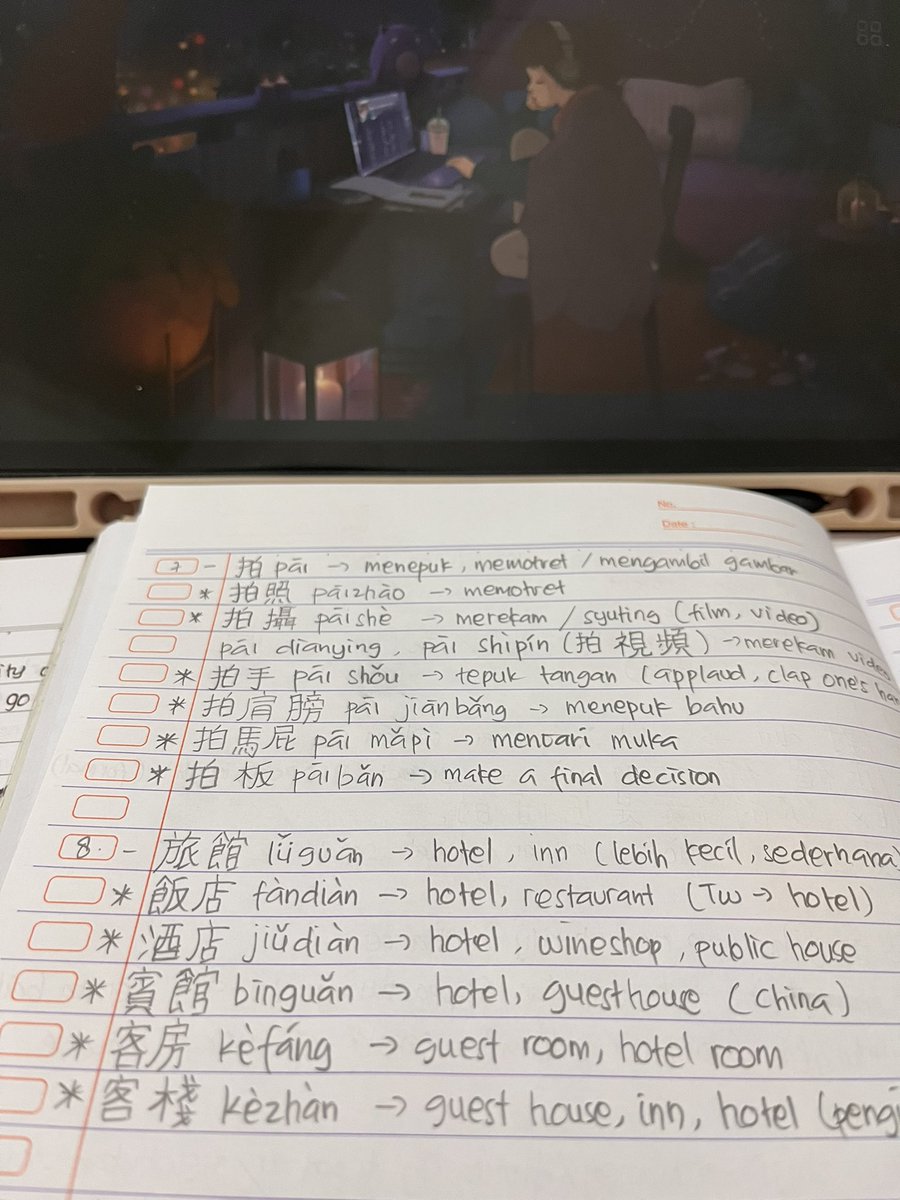 No.
Date :
7 - 拍 pāi → menepuk, memotret / mengambil gambar
* 拍照 pāizhào → memotret
* 拍攝 pāishè → merekam / syuting (film, video)
pāi diànyǐng, pāi shìpín (拍視頻) → merekam video
* 拍手 pāi shǒu → tepuk tangan (applaud, clap one's
* 拍肩膀 pāi jiānbǎng → menepuk bahu
* 拍馬屁 pāi mǎpì → mencari muka
* 拍板 pāibǎn → make a final decision
8. - 旅館 lǚguǎn → hotel, inn (lebih kecil, sederhana)
* 飯店 fàndiàn → hotel, restaurant (Tw → hotel)
* 酒店 jiǔdiàn → hotel, wineshop, public house
* 賓館 bīnguǎn → hotel, guesthouse (China)
* 客房 kèfáng → guest room, hotel room
* 客棧 kèzhàn → guest house, inn, hotel
go